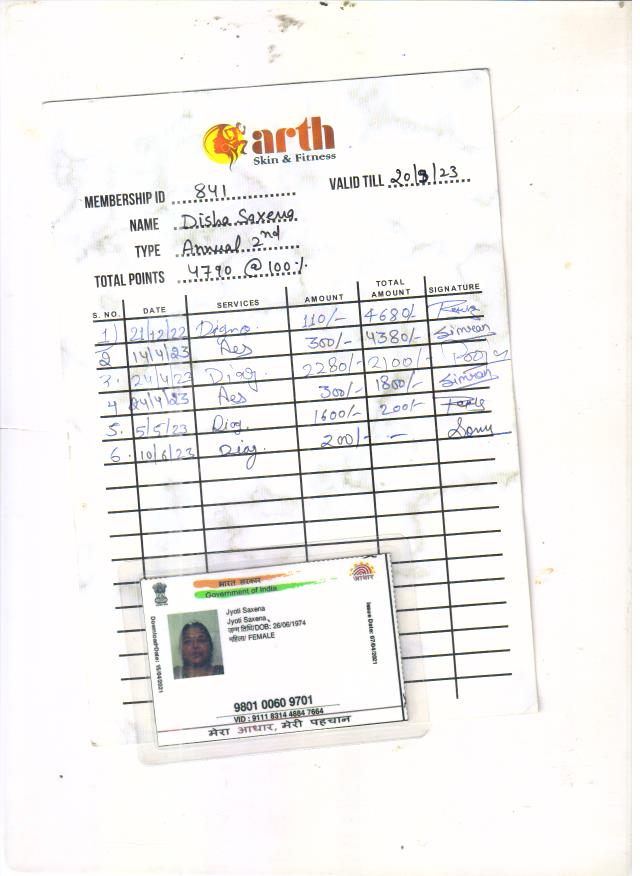 arth
Skin & Fitness
MEMBERSHIP ID 841
VALID TILL 20/9/23
NAME Disha Saxena
TYPE Annual 2nd
TOTAL POINTS 4790 @ 100%
S. NO. DATE SERVICES AMOUNT TOTAL AMOUNT SIGNATURE
1) 21/12/22 110/- 4680/-
2 14/4/23 Aes 300/- 4380/- Simran
3. 24/4/23 Diag. 2280/- 2100/-
4 24/4/23 Aes 300/- 1800/- Simran
5. 5/5/23 Diag. 1600/- 200/-
6. 10/6/23 Diag. 200/- - Sonu
भारत सरकार
Government of India
आधार
Jyoti Saxena
Jyoti Saxena
जन्म तिथि/DOB: 26/06/1974
महिला/ FEMALE
Download Date: 15/04/2021
Issue Date: 07/04/2021
9801 0060 9701
VID : 9111 8314 4884 7664
मेरा आधार, मेरी पहचान